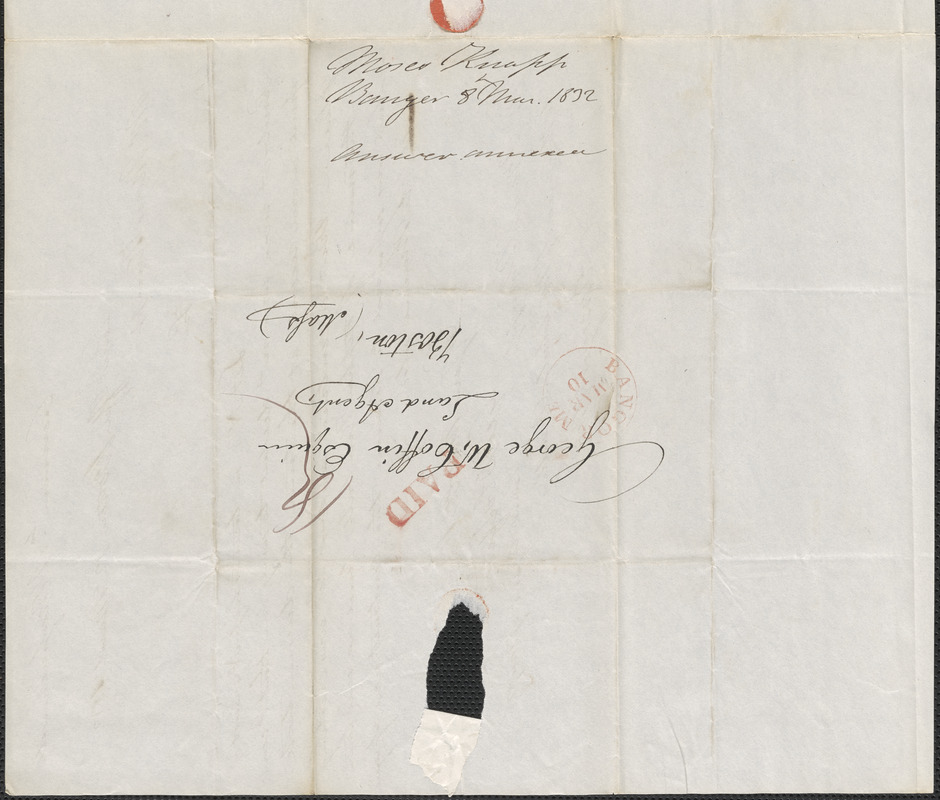 Moses Knapp
Bangor 8 Mar. 1832
Answer annexed
George W. Coffin Esquire
Land Agent,
Boston,
(Mass)
BANGOR ME
MAR
10
PAID